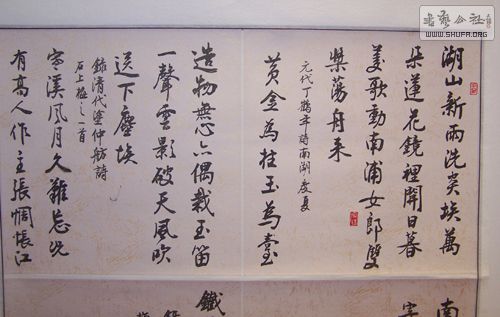 书艺公社
WWW.SHUFA.ORG
湖山新雨洗炎埃萬
朵蓮花鏡裡開日暮
歌動南浦女郎雙
槳蕩舟來
元代丁鶴年詩南湖度夏
黃金為柱玉為臺
造物無心亦偶栽玉笛
一聲雲影破天風吹
送下塵埃
錄清代塗仲舫詩
石上梅之一首
溪風月久難忘況
有高人作主張惆悵江
南
字
鐵